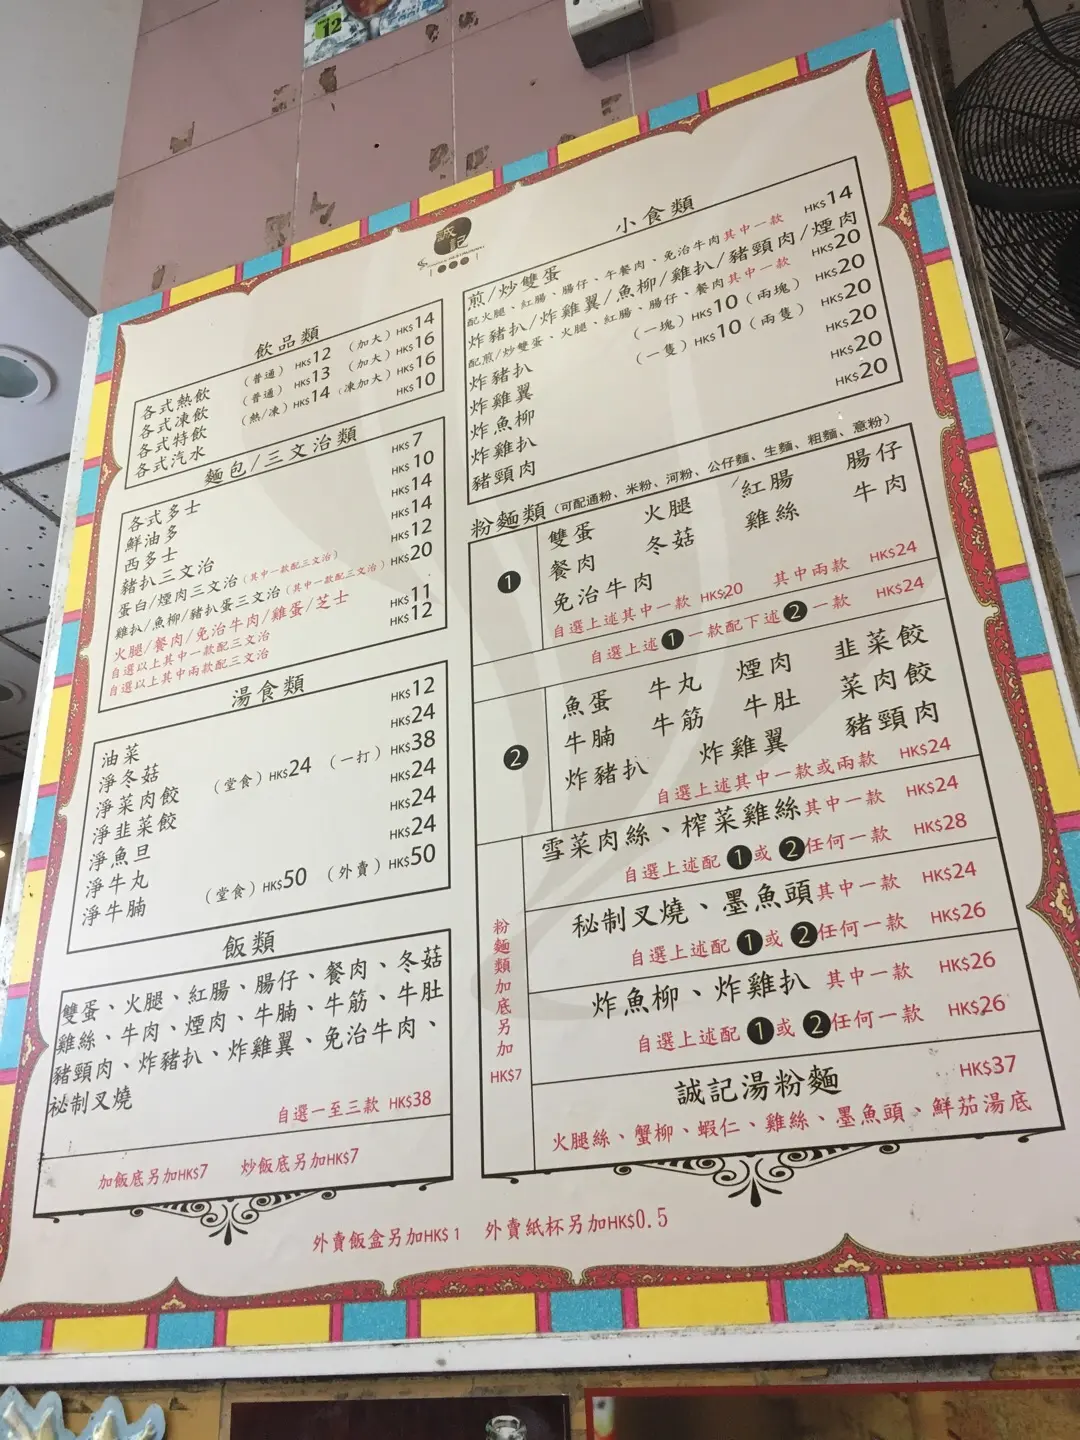 12
誠記
飲品類
各式熱飲 （普通）HK$12 （加大）HK$14
各式凍飲 （普通）HK$13 （加大）HK$16
各式特飲 （熱/凍）HK$14 （凍加大）HK$16
各式汽水 HK$10
麵包/三文治類
各式多士 HK$7
鮮油多 HK$10
西多士 HK$14
豬扒三文治 HK$14
蛋白/煙肉三文治（其中一款配三文治） HK$12
雞扒/魚柳/豬扒蛋三文治（其中一款配三文治） HK$20
火腿/餐肉/免治牛肉/雞蛋/芝士
自選以上其中一款配三文治 HK$11
自選以上其中兩款配三文治 HK$12
湯食類
油菜 HK$12
淨冬菇 HK$24
淨菜肉餃 （堂食）HK$24 （一打）HK$38
淨韭菜餃 HK$24
淨魚旦 HK$24
淨牛丸 HK$24
淨牛腩 （堂食）HK$50 （外賣）HK$50
飯類
雙蛋、火腿、紅腸、腸仔、餐肉、冬菇
雞絲、牛肉、煙肉、牛腩、牛筋、牛肚
豬頸肉、炸豬扒、炸雞翼、免治牛肉、
祕制叉燒
自選一至三款 HK$38
加飯底另加HK$7 炒飯底另加HK$7
小食類
煎/炒雙蛋 HK$14
配火腿、紅腸、腸仔、午餐肉、免治牛肉其中一款
炸豬扒/炸雞翼/魚柳/雞扒/豬頸肉/煙肉 HK$20
配煎/炒雙蛋、火腿、紅腸、腸仔、餐肉其中一款
炸豬扒 （一塊）HK$10（兩塊） HK$20
炸雞翼 （一隻）HK$10（兩隻） HK$20
炸魚柳 HK$20
炸雞扒 HK$20
豬頸肉 HK$20
粉麵類（可配通粉、米粉、河粉、公仔麵、生麵、粗麵、意粉）
1
雙蛋 火腿 紅腸 腸仔
餐肉 冬菇 雞絲 牛肉
免治牛肉
自選上述其中一款 HK$20 其中兩款 HK$24
自選上述1一款配下述2一款 HK$24
2
魚蛋 牛丸 煙肉 韭菜餃
牛腩 牛筋 牛肚 菜肉餃
炸豬扒 炸雞翼 豬頸肉
自選上述其中一款或兩款 HK$24
粉麵類加底另加 HK$7
雪菜肉絲、榨菜雞絲其中一款 HK$24
自選上述配1或2任何一款 HK$28
秘制叉燒、墨魚頭其中一款 HK$24
自選上述配1或2任何一款 HK$26
炸魚柳、炸雞扒 其中一款 HK$26
自選上述配1或2任何一款 HK$26
誠記湯粉麵 HK$37
火腿絲、蟹柳、蝦仁、雞絲、墨魚頭、鮮茄湯底
外賣飯盒另加HK$1 外賣紙杯另加HK$0.5